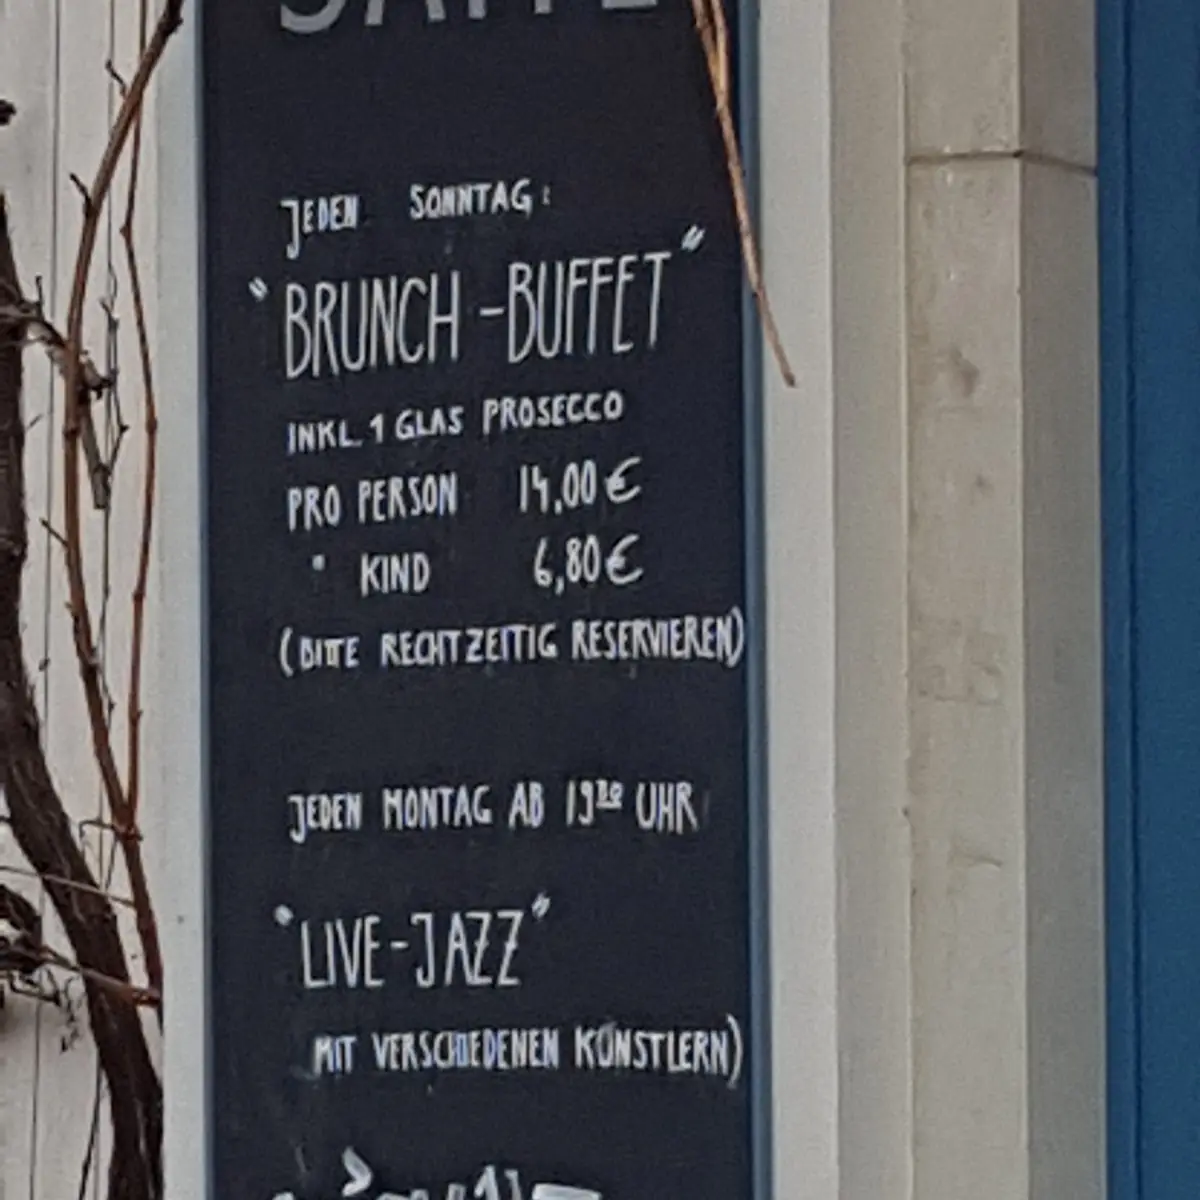 JEDEN SONNTAG:
"BRUNCH-BUFFET"
INKL. 1 GLAS PROSECCO
PRO PERSON 14,00 €
" KIND 6,80 €
(BITTE RECHTZEITIG RESERVIEREN)
JEDEN MONTAG AB UHR
"LIVE-JAZZ"
MIT VERSCHIEDENEN KÜNSTLERN)